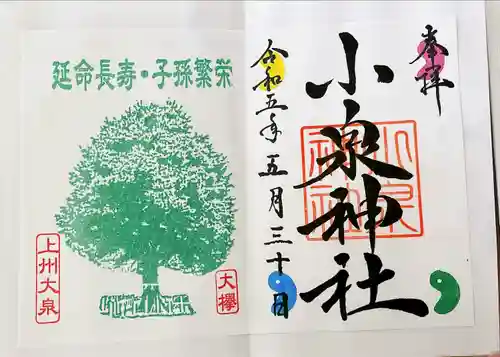 奉拝
小泉神社
小泉神社
令和五年五月三十日
延命長寿・子孫繁栄
上州大泉
大欅